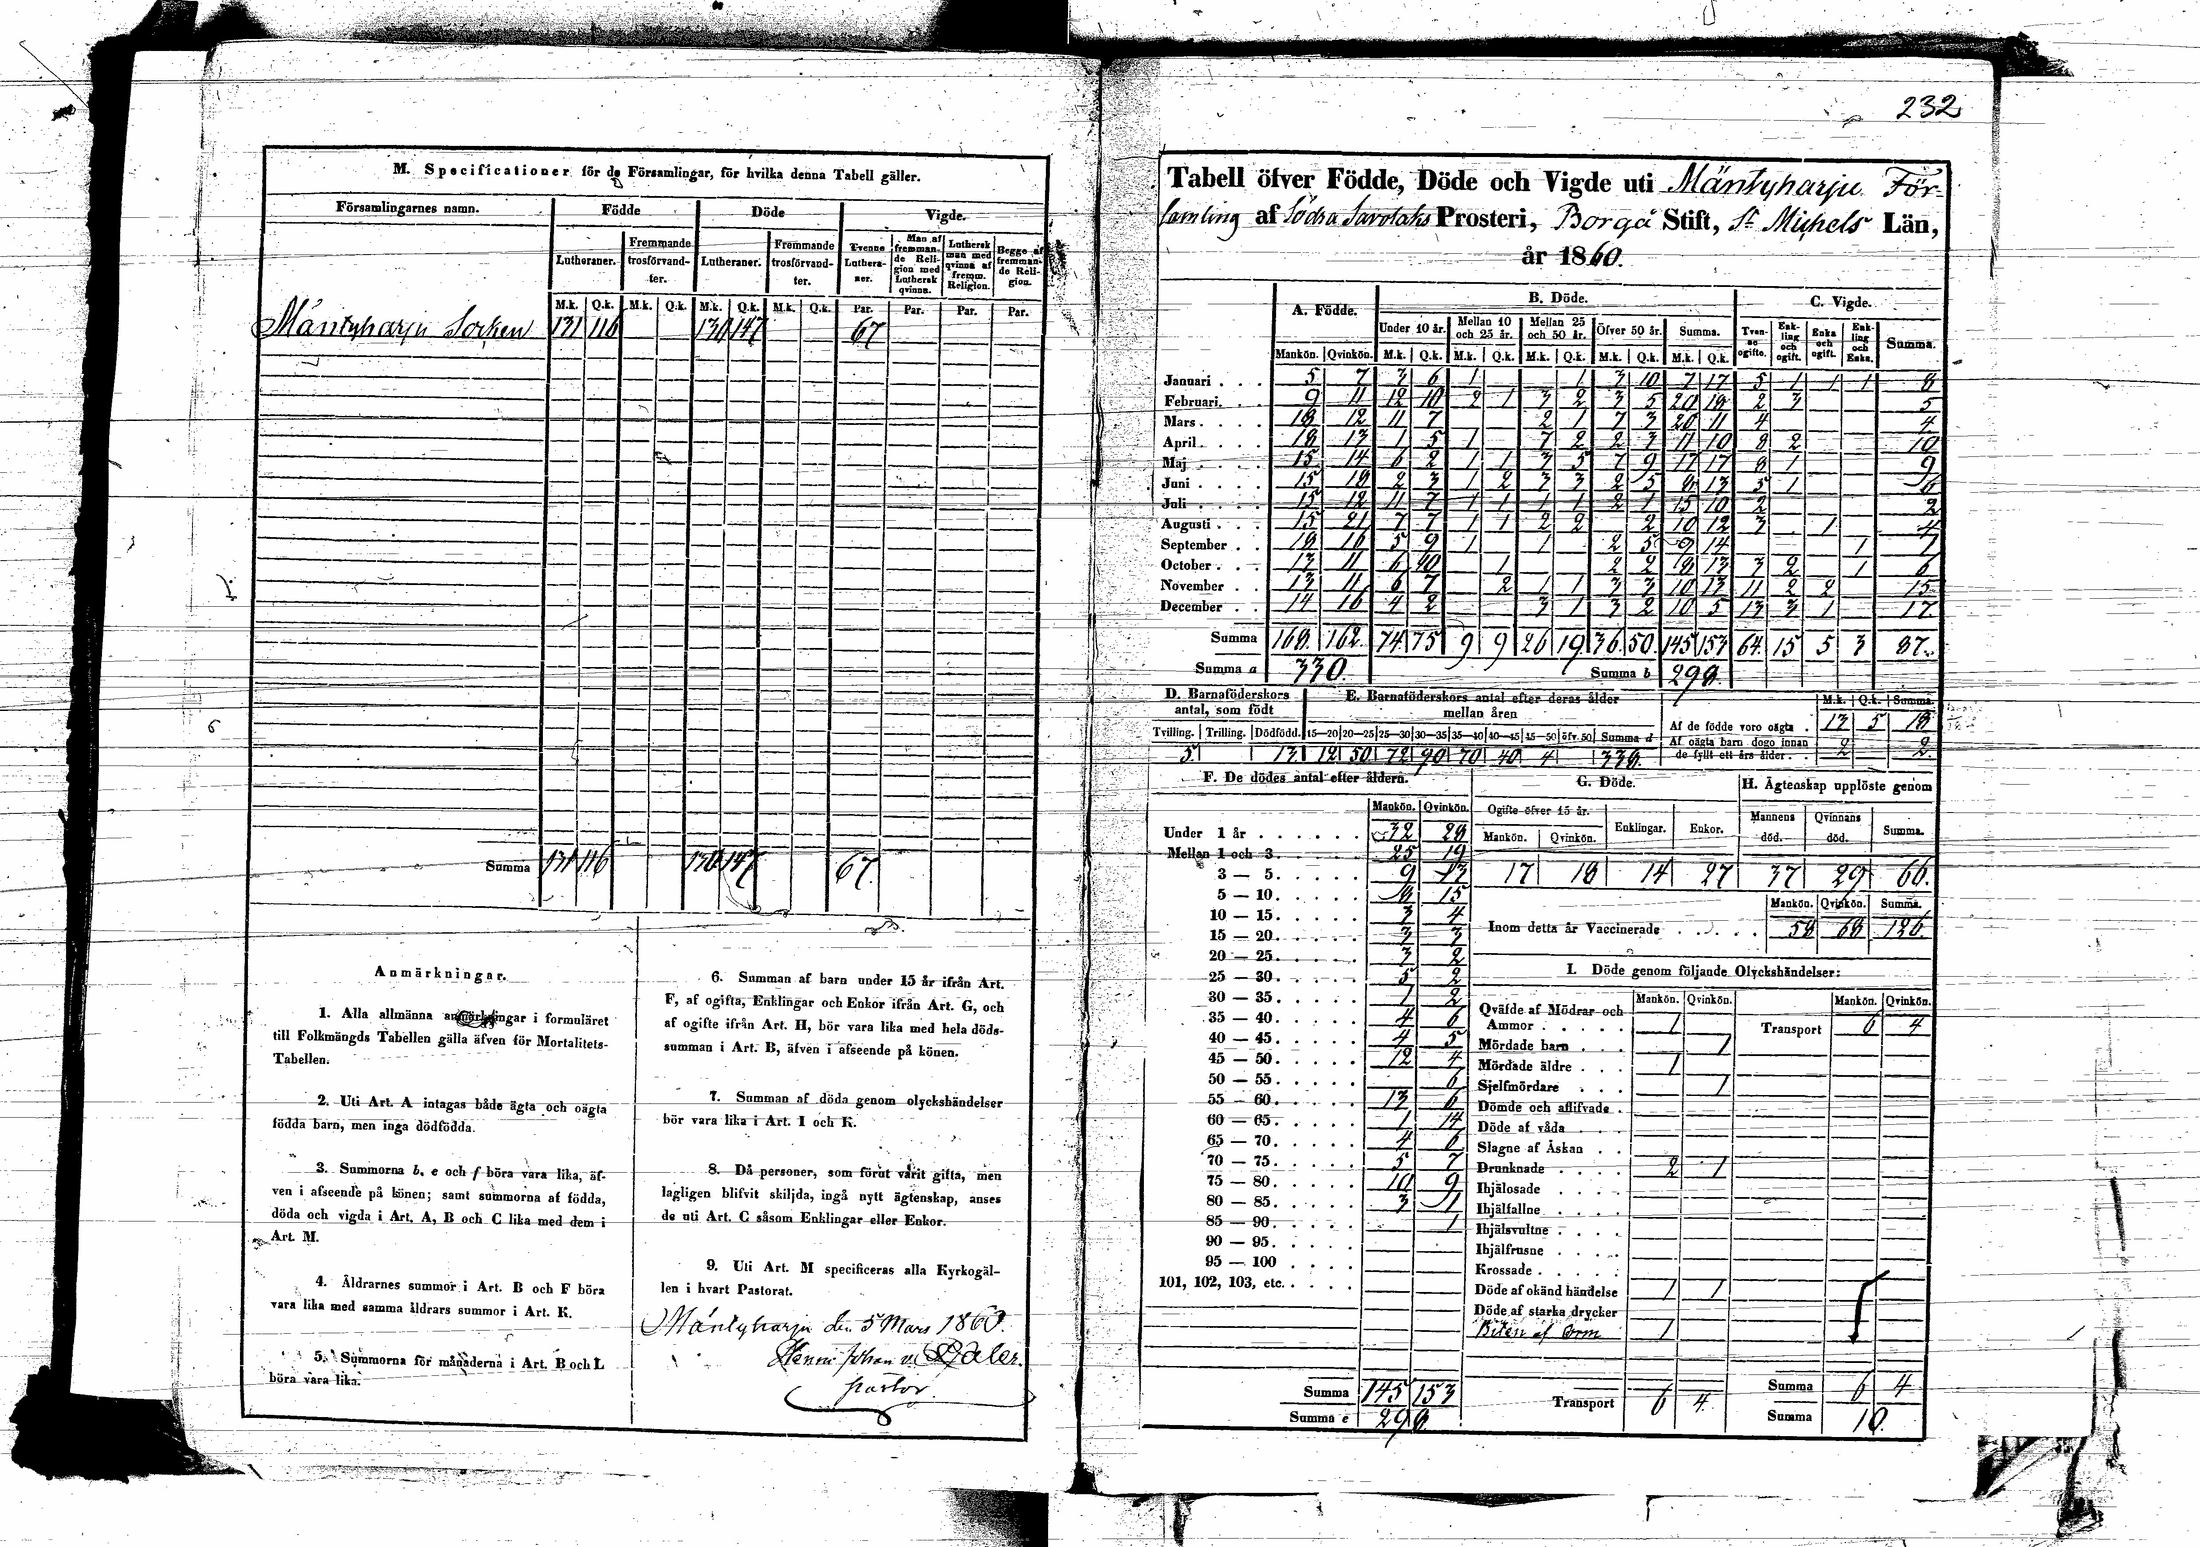 M. Specificationer för de Församlingar, för hvilka denna Tabell gäller.
Församlingarnes namn. Födde Döde Vigde.
Lutheraner. Fremmande trosförvandter. Lutheraner. Fremmande trosförvandter. Tvenne Lutheraner. Man af fremmande Religion med Luthersk qvinna. Luthersk man med qvinna af fremm. Religion. Begge af fremmande Religion.
M.k. Q.k. M.k. Q.k. M.k. Q.k. M.k. Q.k. Par. Par. Par. Par.
Mäntyharju Socken 131 116 130 147 67
Summa 131 116 130 147 67.
Anmärkningar.
1. Alla allmänna anmärkningar i formuläret
till Folkmängds Tabellen gälla äfven för Mortalitets-
Tabellen.
2. Uti Art. A intagas både ägta och oägta
födda barn, men inga dödfödda.
3. Summorna b, e och f böra vara lika, äf-
ven i afseende på könen; samt summorna af födda,
döda och vigda i Art. A, B och C lika med dem i
Art. M.
4. Åldrarnes summor i Art. B och F böra
vara lika med samma åldrars summor i Art. K.
5. Summorna för månaderna i Art. B och L
böra vara lika.
6. Summan af barn under 15 år ifrån Art.
F, af ogifta, Enklingar och Enkor ifrån Art. G, och
af ogifte ifrån Art. H, bör vara lika med hela döds-
summan i Art. B, äfven i afseende på könen.
7. Summan af döda genom olyckshändelser
bör vara lika i Art. I och K.
8. Då personer, som förut varit gifta, men
lagligen blifvit skiljda, ingå nytt ägtenskap, anses
de uti Art. C såsom Enklingar eller Enkor.
9. Uti Art. M specificeras alla Kyrkogäl-
len i hvart Pastorat.
Mäntyharju den 5 Mars 1860.
Johan
pastor.
232
Tabell öfver Födde, Döde och Vigde uti Mäntyharju För-
samling af Södra Savolaks Prosteri, Borgå Stift, St Michels Län,
år 1860.
A. Födde. B. Döde. C. Vigde.
Under 10 år. Mellan 10 och 25 år. Mellan 25 och 50 år. Öfver 50 år. Summa. Tvenne ogifte. Enkling och ogift. Enka och ogift. Enkling och Enka. Summa.
Mankön. Qvinkön. M.k. Q.k. M.k. Q.k. M.k. Q.k. M.k. Q.k. M.k. Q.k.
Januari 5 7 3 6 1 1 3 10 7 17 5 1 1 1 8
Februari 9 11 12 10 2 1 3 2 3 5 20 18 2 3 5
Mars 18 12 11 7 2 1 7 3 20 11 4 4
April 18 13 1 5 1 7 2 2 3 11 10 8 2 10
Maj 15 14 6 2 1 1 3 5 7 9 17 17 8 1 9
Juni 15 18 2 3 1 2 3 3 2 5 8 13 5 1 6
Juli 15 12 11 7 1 1 1 1 2 1 15 10 2 2
Augusti 15 21 7 7 1 1 2 2 2 10 12 3 1 4
September 18 16 5 9 1 1 2 5 9 14 1 1
October 13 11 6 10 1 2 2 8 13 3 2 1 6
November 13 11 6 7 2 1 1 3 3 10 13 11 2 2 15
December 14 16 4 2 3 1 3 2 10 5 13 3 1 17
Summa 168. 162. 74. 75 9 9 26 19 36. 50. 145 153 64. 15 5 3 87.
Summa a 330. Summa b 298.
D. Barnaföderskors antal, som födt E. Barnaföderskors antal efter deras ålder mellan åren
M.k. Q.k. Summa
Af de födde voro oägta 13 5 18
Tvilling. Trilling. Dödfödd. 15—20 20—25 25—30 30—35 35—40 40—45 45—50 öfv. 50 Summa d
Af oägta barn dogo innan de fyllt ett års ålder 2 2.
5. 13 12 50 72 90 70 40 4 338.
F. De dödes antal efter åldern. G. Döde. H. Ägtenskap upplöste genom
Mankön. Qvinkön. Ogifte öfver 15 år. Enklingar. Enkor. Mannens död. Qvinnans död. Summa.
Mankön. Qvinkön.
17 18 14 27 37 29 66.
Under 1 år 32 28
Mellan 1 och 3 25 19
3 — 5 9 13
5 — 10 8 15
10 — 15 3 4
15 — 20 3 3
20 — 25 3 2
25 — 30 5 2
30 — 35 1 2
35 — 40 4 6
40 — 45 4 5
45 — 50 12 4
50 — 55 6
55 — 60 13 6
60 — 65 1 14
65 — 70 4 6
70 — 75 5 7
75 — 80 10 9
80 — 85 3 1
85 — 90 1
90 — 95
95 — 100
101, 102, 103, etc.
Summa 145 153
Summa e 298
Mankön. Qvinkön. Summa.
Inom detta år Vaccinerade 58 68 126.
I. Döde genom följande Olyckshändelser:
Mankön. Qvinkön. Mankön. Qvinkön.
Qväfde af Mödrar och Ammor 1 Transport 6 4
Mördade barn 1
Mördade äldre 1
Sjelfmördare 1
Dömde och aflifvade
Döde af våda
Slagne af Åskan
Drunknade 2 1
Ihjälosade
Ihjälfallne
Ihjälsvultne
Ihjälfrusne
Krossade
Döde af okänd händelse 1 1
Döde af starka drycker
Biten af Orm 1
Transport 6 4. Summa 6 4
Summa 10.